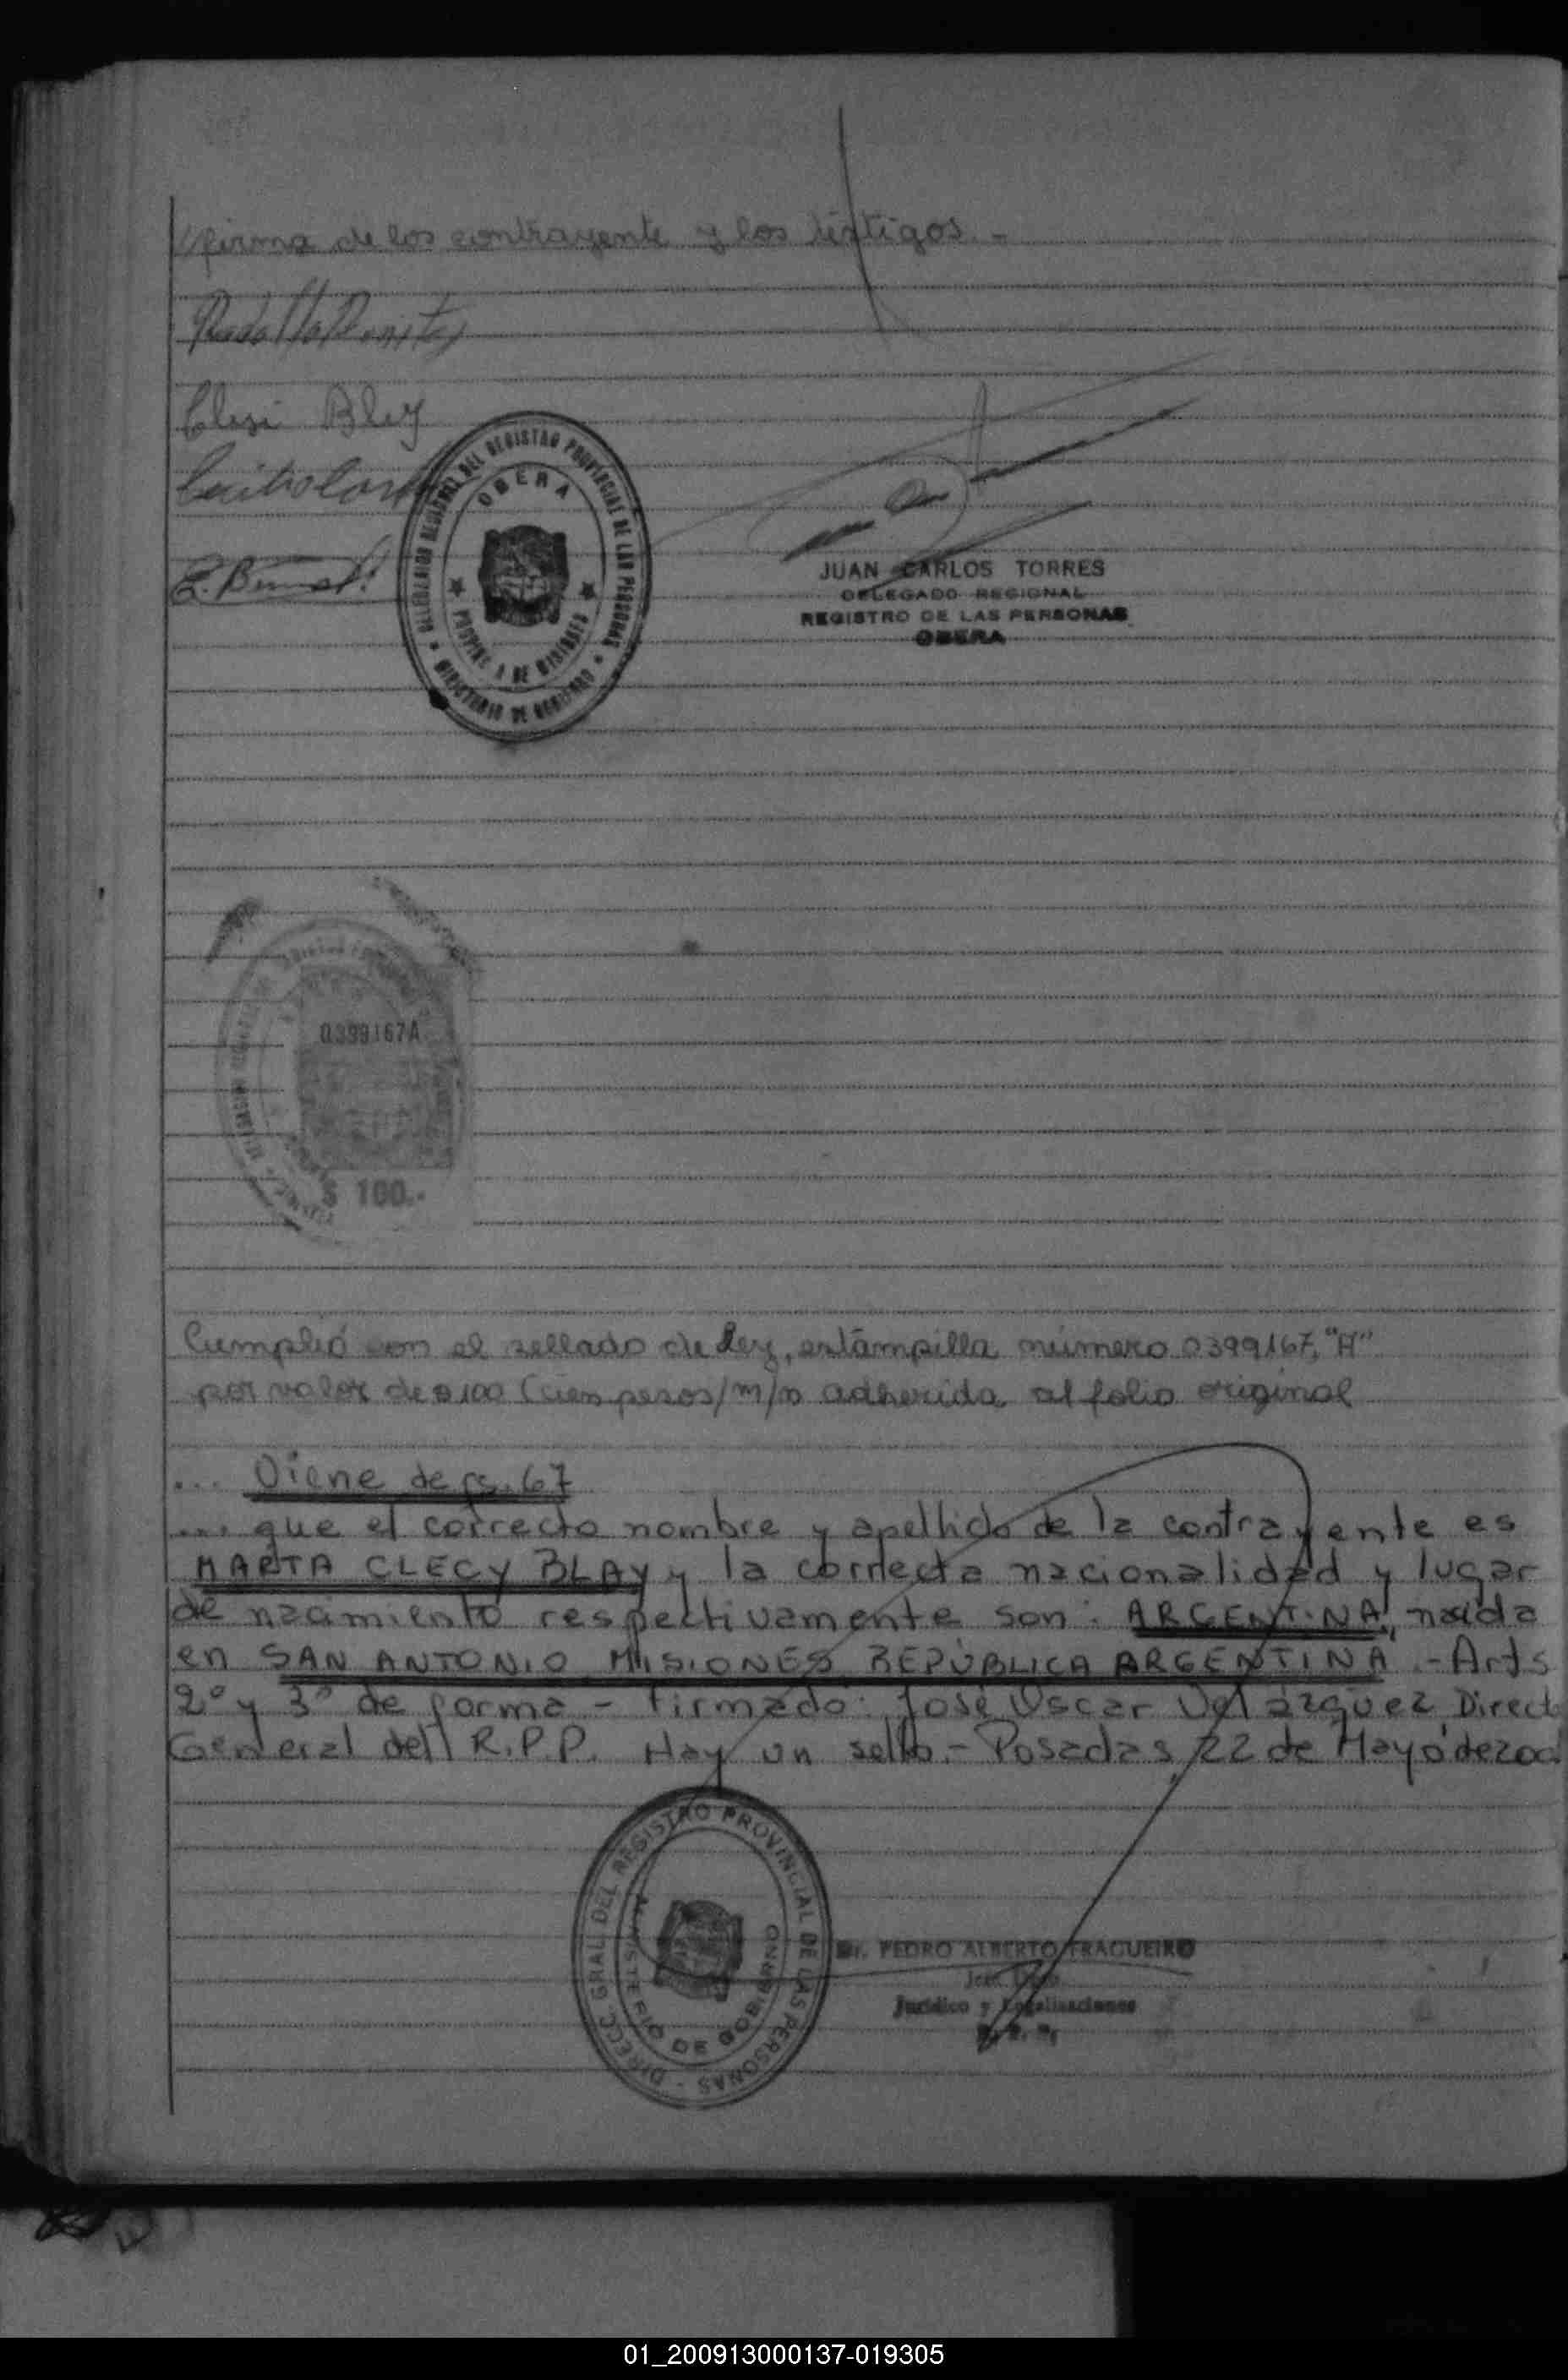 firma de los contrayente y los testigos.-
Clesi Bley
OBERA
JUAN CARLOS TORRES
DELEGADO REGIONAL
REGISTRO DE LAS PERSONAS
OBERA
0399167A
$ 100.-
Cumplió con el sellado de Ley, estampilla número 0399167, "A"
por valor de $100 (cien pesos/m/n adherida al folio original
... Viene de fs. 67
... que el correcto nombre y apellido de la contrayente es
MARTA CLECY BLAY y la correcta nacionalidad y lugar
de nacimiento respectivamente son: ARGENTINA, nacida
en SAN ANTONIO MISIONES REPÚBLICA ARGENTINA.- Arts
2° y 3° de forma - Firmado: José Oscar Velázquez Direct
General del R.P.P. Hay un sello.- Posadas, 22 de Mayo de
DIRECC. GRAL. DEL REGISTRO PROVINCIAL DE LAS PERSONAS -
MINISTERIO DE GOBIERNO
Dr. PEDRO ALBERTO FRAGUEIRO
Jurídico y Legalizaciones
01_200913000137-019305